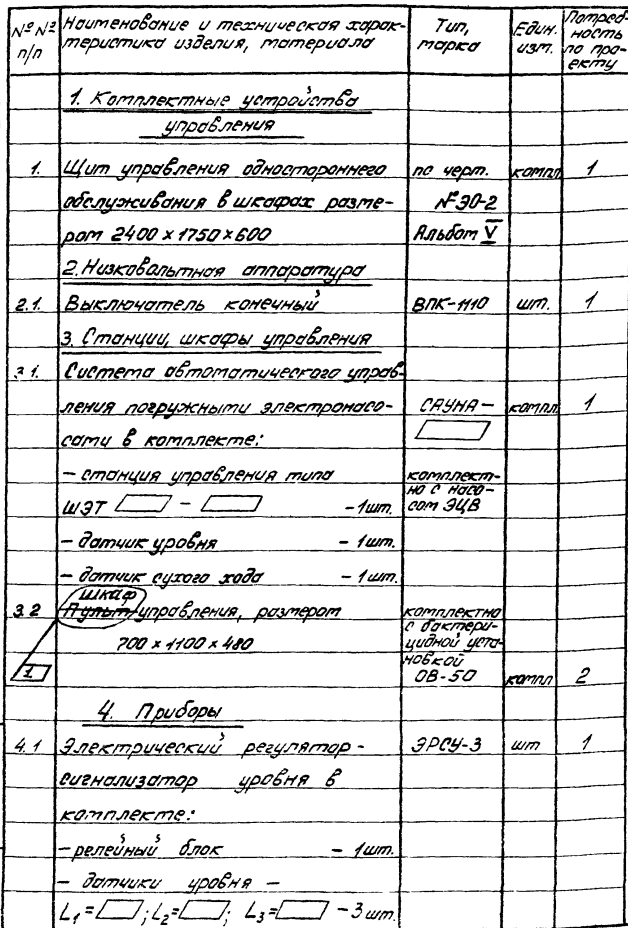 № №
п/п
Наименование и техническая харак-
теристика изделия, материала
Тип,
марка
Един.
изм.
Потреб-
ность
по про-
екту
1. Комплектные устройства
управления
1. Щит управления одностороннего по черт. компл 1
обслуживания в шкафах разме- №ЭО-2
ром 2400 x 1750 x 600 Альбом V
2. Низковольтная аппаратура
2.1. Выключатель конечный ВПК-1110 шт. 1
3. Станции, шкафы управления
3.1. Система автоматического управ-
ления погружными электронасо- САУНА- компл 1
сами в комплекте:
- станция управления типа комплект-
но с насо-
ШЭТ - - 1шт. сом ЭЦВ
- датчик уровня - 1шт.
- датчик сухого хода - 1шт.
шкаф
3.2 Пульт управления, размером комплектно
с бактери-
700 x 1100 x 480 цидной уста-
новкой
1 ОВ-50 компл 2
4. Приборы
4.1 Электрический регулятор- ЭРСУ-3 шт 1
сигнализатор уровня в
комплекте:
- релейный блок - 1шт.
- датчики уровня -
L1 = ; L2 = ; L3 = - 3 шт.